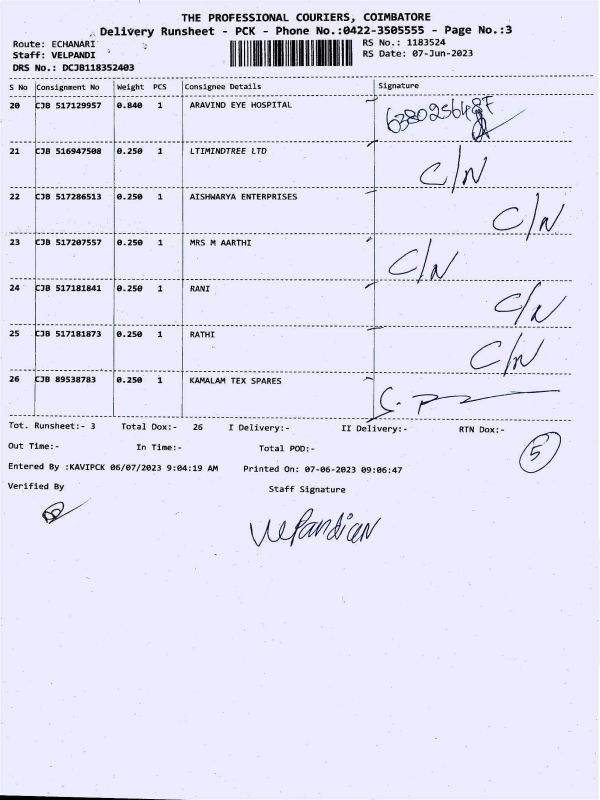 THE PROFESSIONAL COURIERS, COIMBATORE
Delivery Runsheet - PCK - Phone No.:0422-3505555 - Page No.:3
Route: ECHANARI RS No.: 1183524
Staff: VELPANDI RS Date: 07-Jun-2023
DRS No.: DCJB118352403
S No Consignment No Weight PCS Consignee Details Signature
20 CJB 517129957 0.840 1 ARAVIND EYE HOSPITAL
21 CJB 516947508 0.250 1 LTIMINDTREE LTD C/N
22 CJB 517286513 0.250 1 AISHWARYA ENTERPRISES C/N
23 CJB 517207557 0.250 1 MRS M AARTHI C/N
24 CJB 517181841 0.250 1 RANI C/N
25 CJB 517181873 0.250 1 RATHI C/N
26 CJB 89538783 0.250 1 KAMALAM TEX SPARES
Tot. Runsheet:- 3 Total Dox:- 26 I Delivery:- II Delivery:- RTN Dox:-
Out Time:- In Time:- Total POD:- 5
Entered By :KAVIPCK 06/07/2023 9:04:19 AM Printed On: 07-06-2023 09:06:47
Verified By Staff Signature
Velpandian